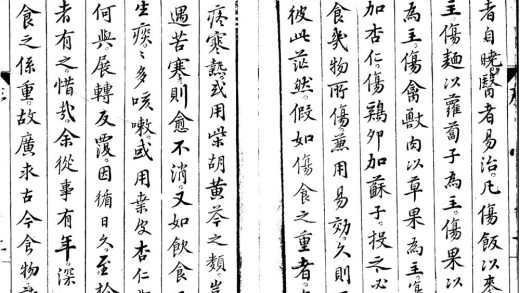 者自曉。醫者易治。凡傷飯以麥
主。傷麵以蘿蔔子為主。傷果以
為主。傷禽獸肉以草果為主。
加杏仁。傷鷄卵加蘇子。投之必
食幾物所傷。兼用易効。久則
彼此茫然。假如傷食之重者。
疼寒熱。或用柴胡黃芩之類。豈
遇苦寒則愈不消。又如飲食
生痰。〻多咳嗽。或用桒皮杏仁
何與。展轉反覆。因循日久。至於
者有之。惜哉。余從事有年。深
食之係重。故廣求古今食物